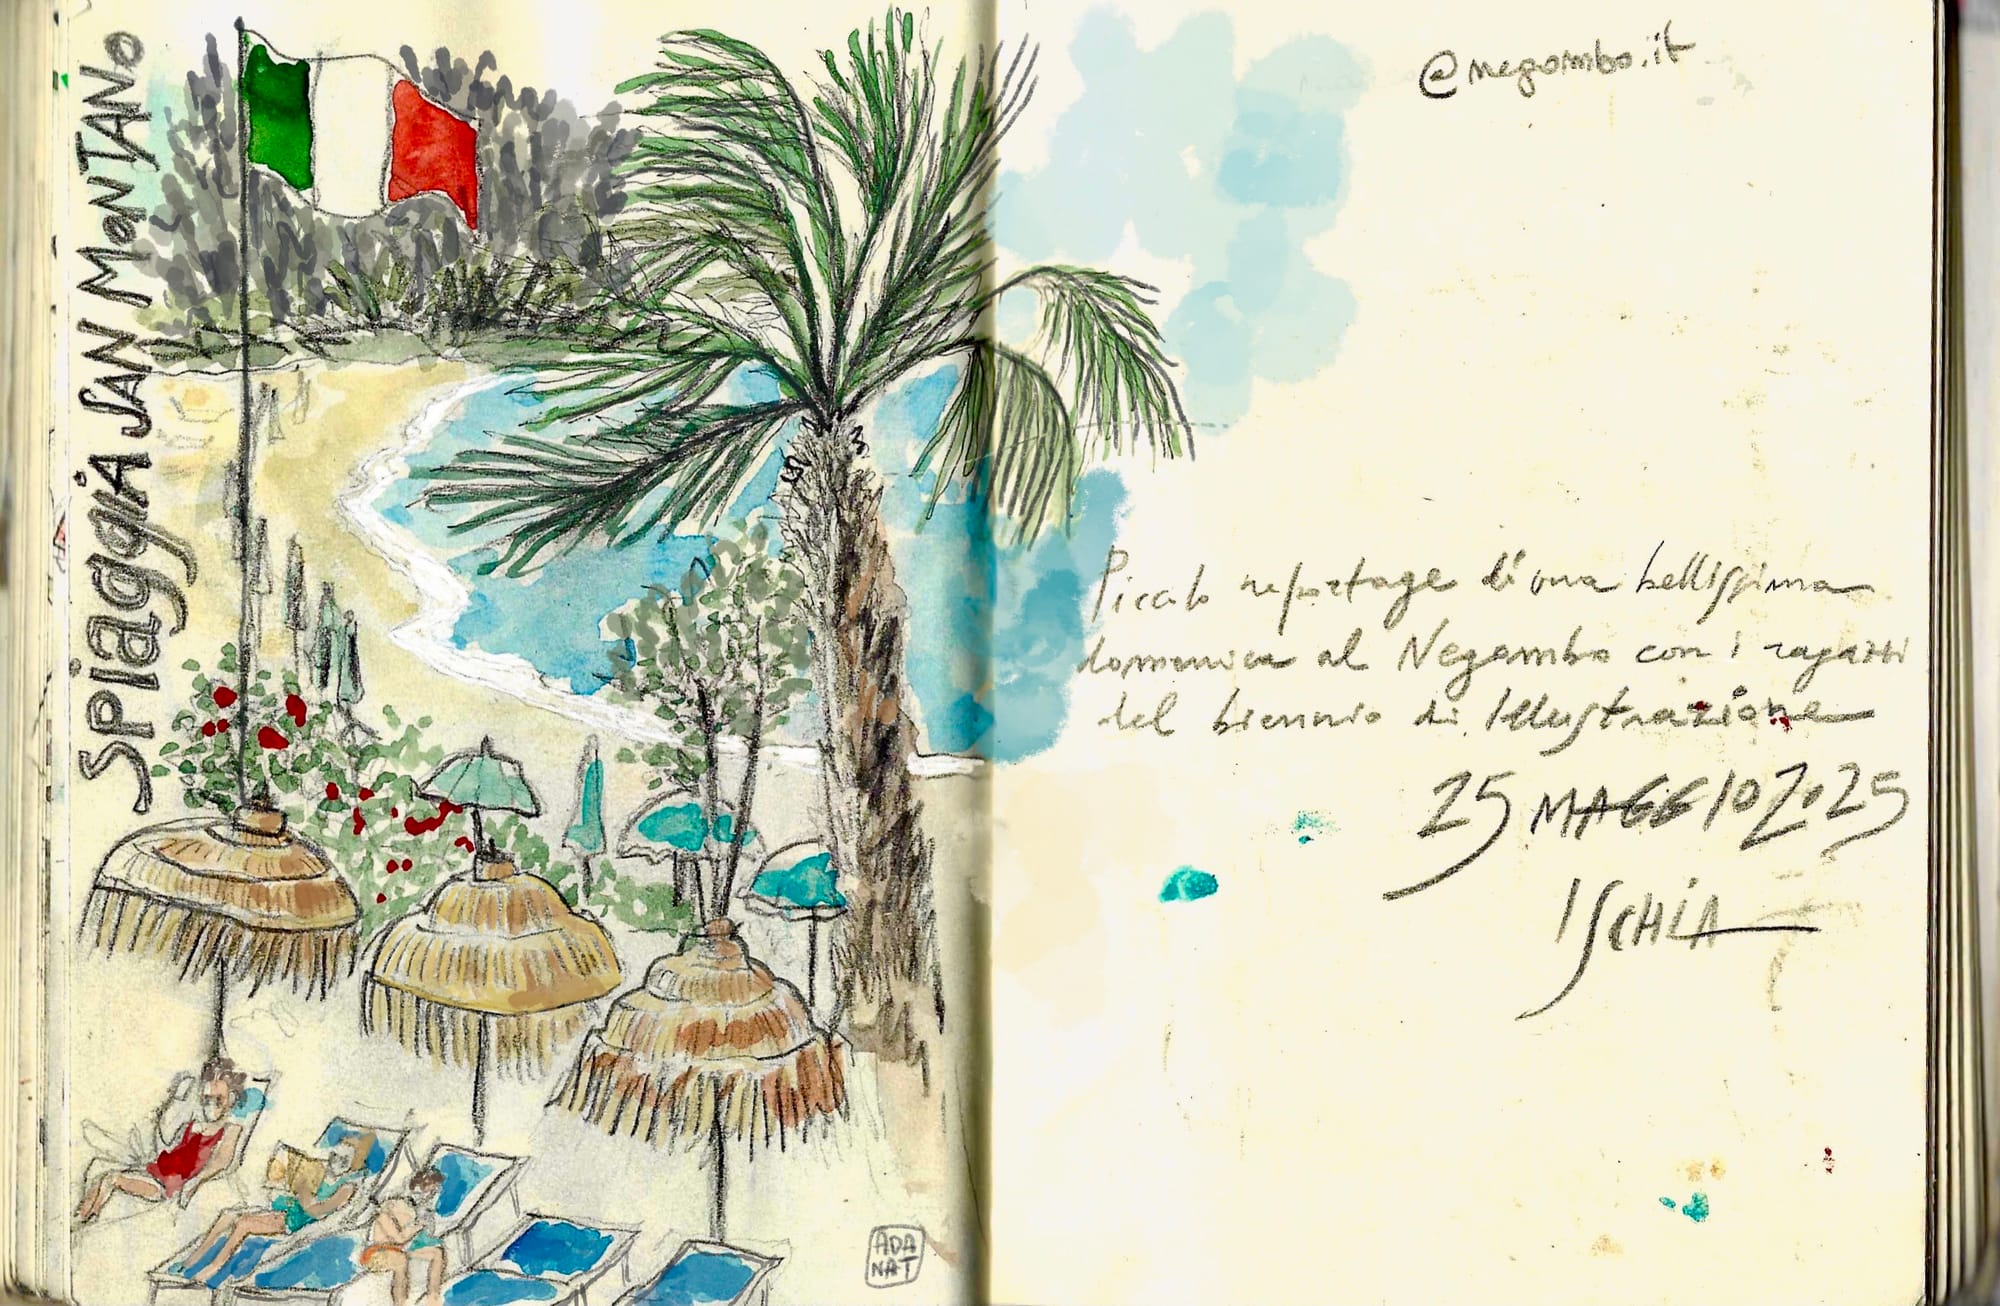 SPIAGGIA SAN MONTANO
@negombo.it
Piccolo reportage di una bellissima
domenica al Negombo con i ragazzi
del biennio di Illustrazione
25 MAGGIO 2025
ISCHIA
ADA
NAT